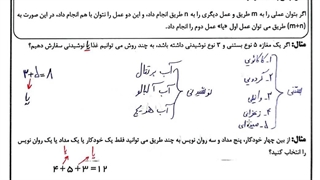 اگر بتوان عملی را به m طریق و عمل دیگری را به n طریق انجام داد، و این دو عمل را نتوان با هم انجام داد، در این صورت به
(m+n) طریق می توان عمل اول «یا» عمل دوم را انجام داد.
مثال: اگر یک مغازه ۵ نوع بستنی و ۳ نوع نوشیدنی داشته باشد، به چند روش می توانیم غذا یا نوشیدنی سفارش دهیم؟
بستنی
۱- کاکائویی
۲- گردویی
۳- وانیلی
۴- زعفرانی
۵-
نوشیدنی
آب پرتقال
آب آلبالو
آب هویج
۳+۵=۸
یا
مثال: از بین چهار خودکار، پنج مداد و سه روان نویس به چند طریق می توانید فقط یک خودکار یا یک مداد یا یک روان نویس
را انتخاب کنید؟
یا یا
۴+۵+۳=۱۲